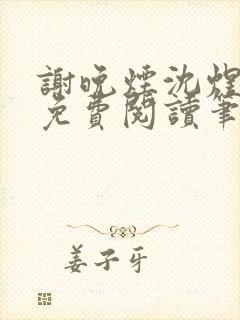 謝晚煙沈煜
免費閱讀筆
姜子牙